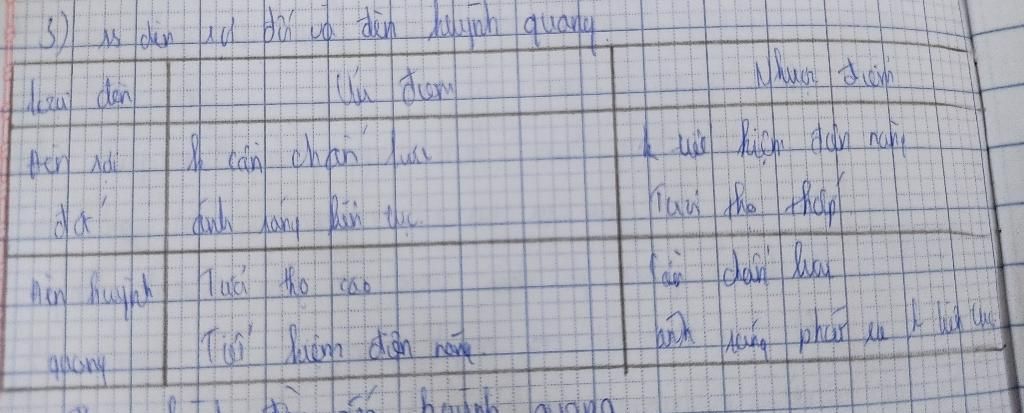 5) ss đèn sợi đốt và đèn huỳnh quang
Loại đèn Ưu điểm Nhược điểm
Đèn sợi K cần chấn lưu K tiết kiệm điện năng
đốt ánh sáng liên tục Tuổi thọ thấp
Đèn huỳnh Tuổi thọ cao Cần chấn lưu
quang Tiết kiệm điện năng ánh sáng phát ra k liên tục
huỳnh quang